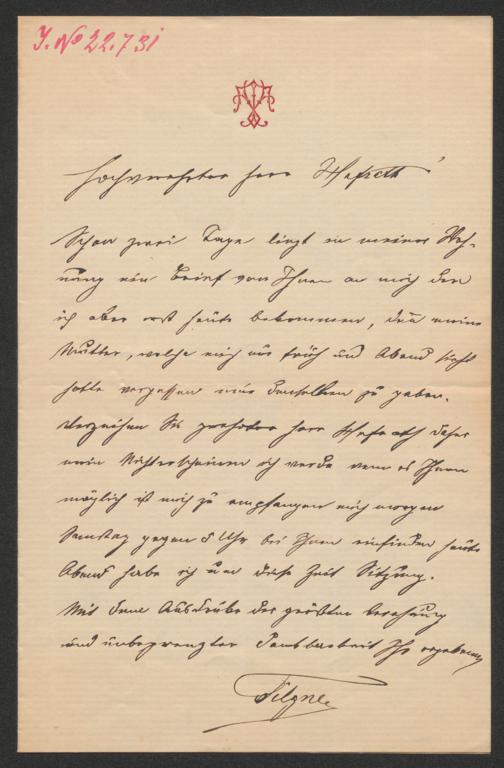 J. No 22.731
Hochverehrter Herr Hofrath!
Schon zwei Tage liegt in meiner Woh-
nung ein Brief von Ihnen an mich den
ich aber erst heute bekommen, den meine
Mutter, welche mich nur früh und Abend sieht
hatte vergessen mir denselben zu geben.
Verzeihen Sie geehrter Herr Hofrath daher
mein Nichterscheinen ich werde wenn es Ihnen
möglich ist mich zu empfangen mich morgen
Samstag gegen 5 Uhr bei Ihnen einfinden heute
Abend habe ich um diese Zeit Sitzung.
Mit dem Ausdrucke der größten Verehrung
und unbegrenzter Dankbarkeit Ihr ergebener
Tilgner